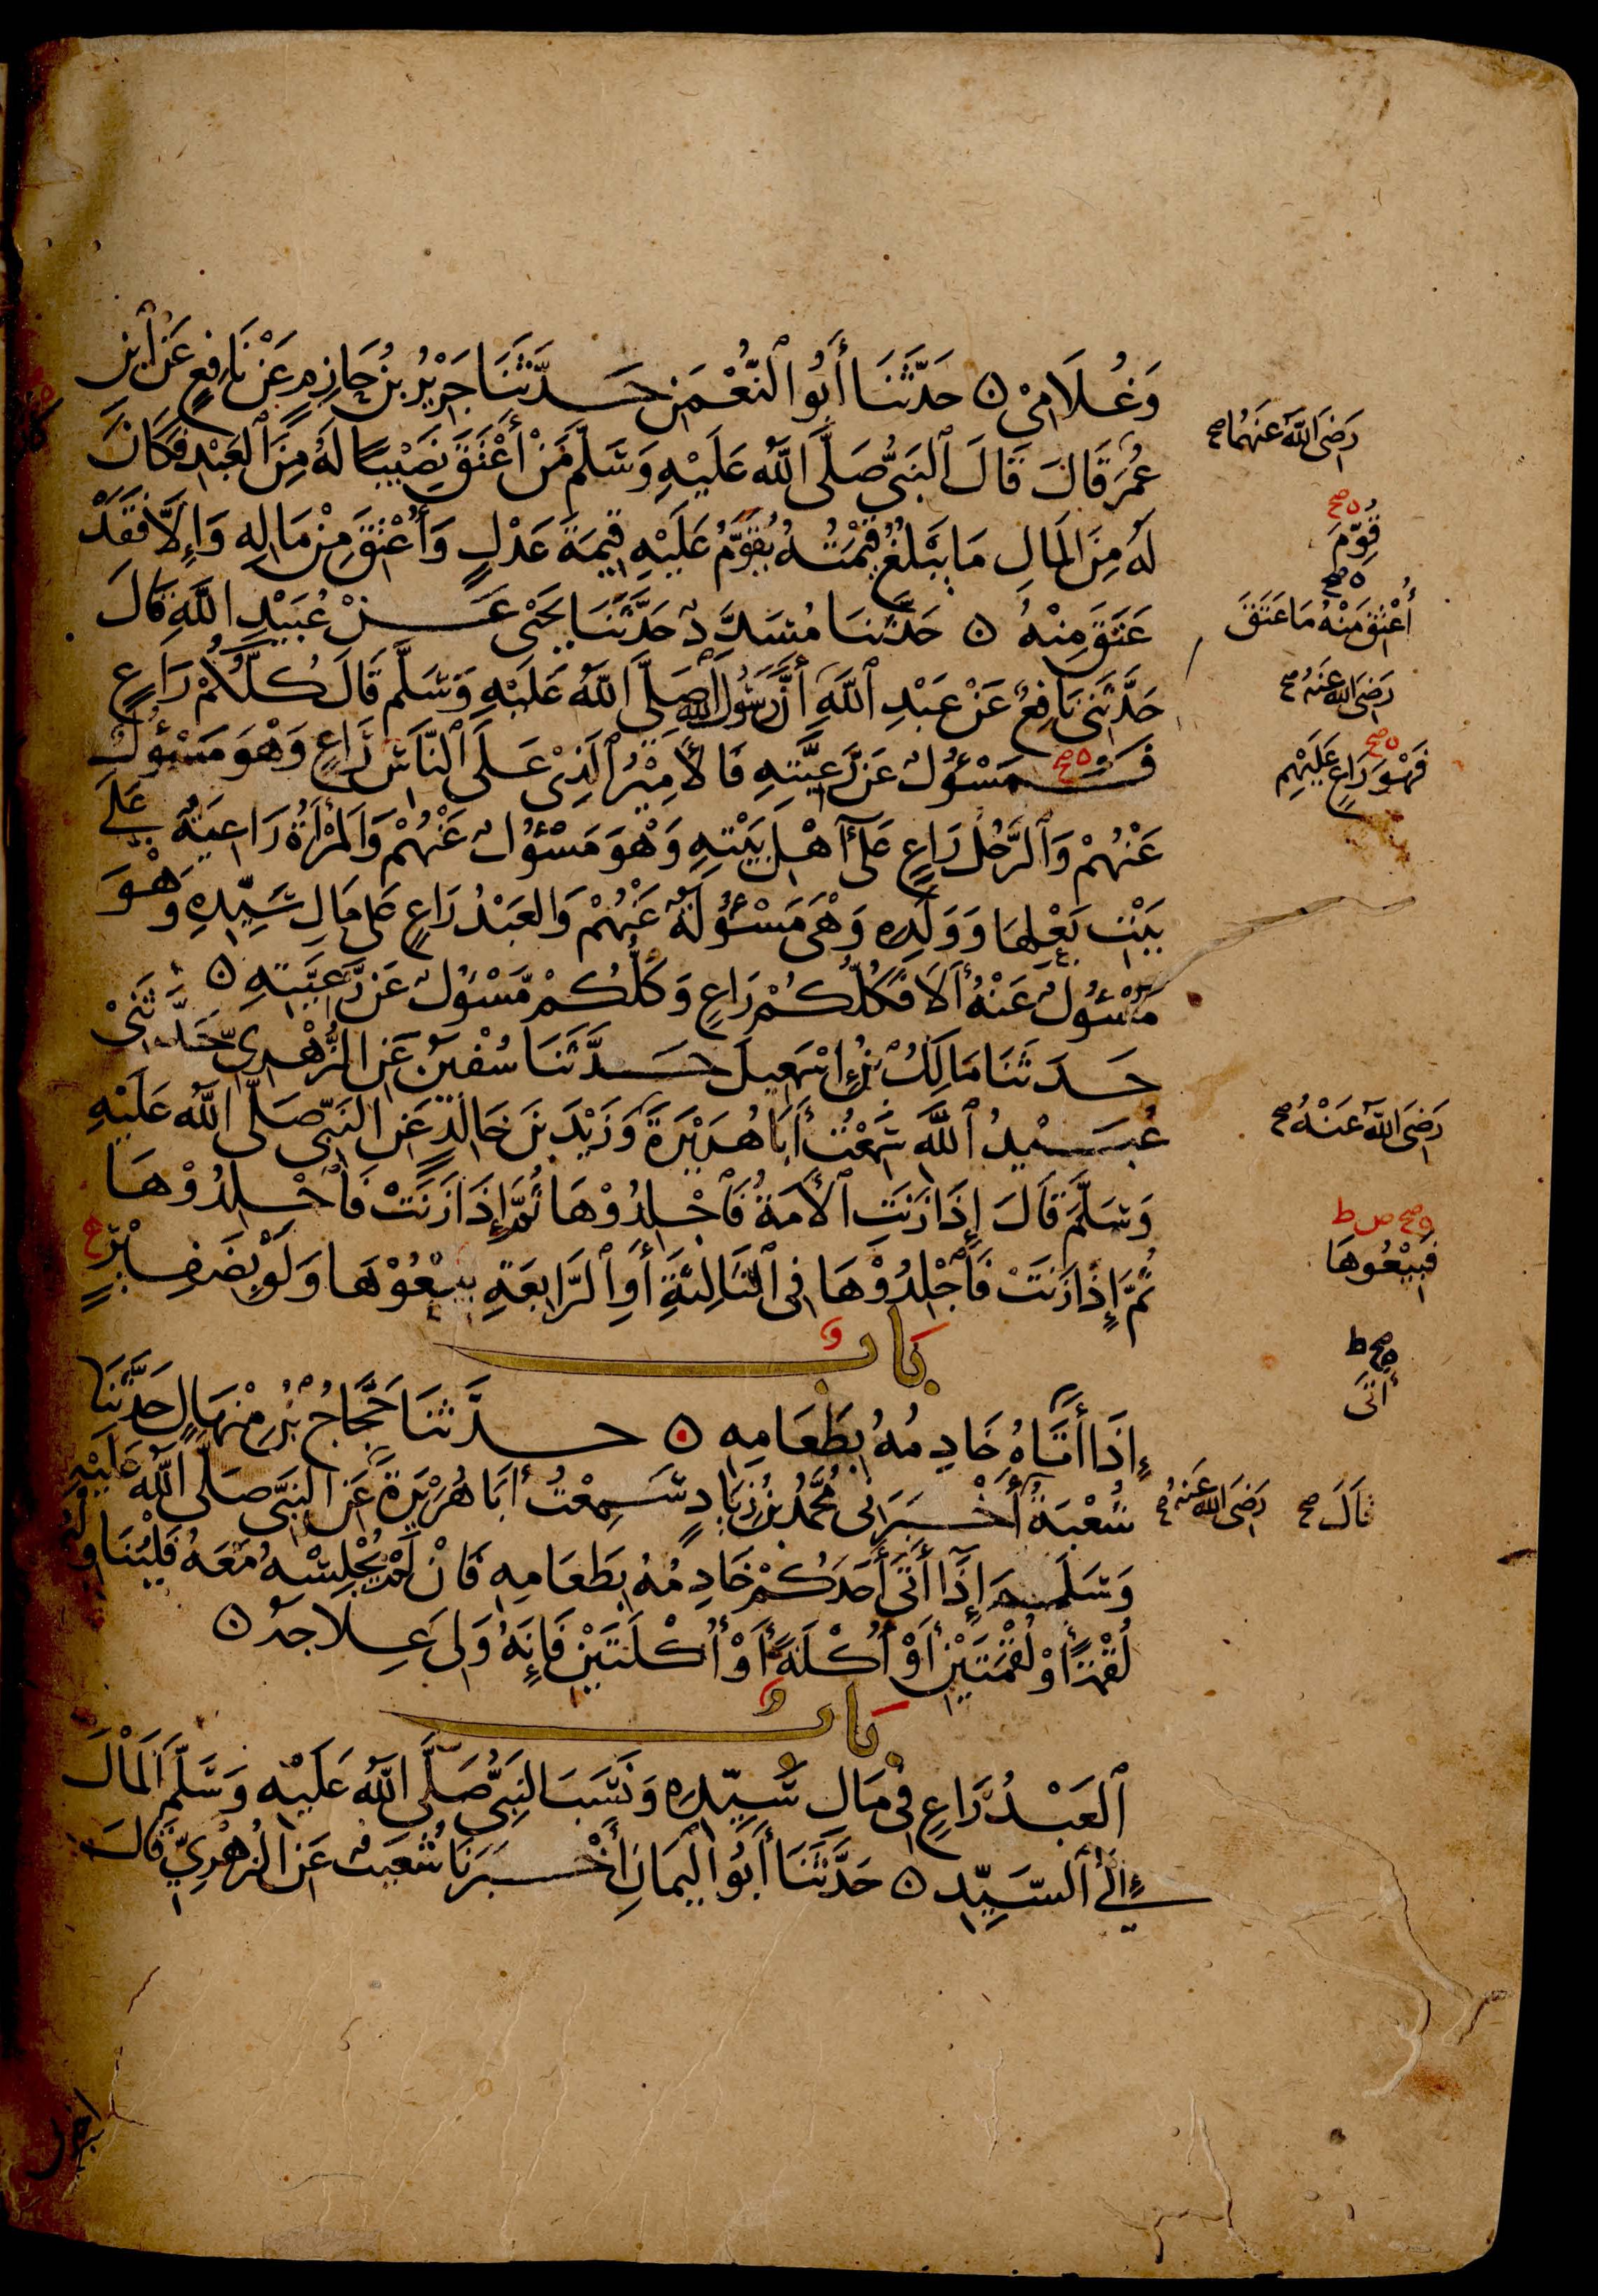 وَغُلَامِيْ ۝ حَدَّثَنَا أَبُو النُّعْمٰنِ حَدَّثَنَا جَرِيْرُ بْنُ حَازِمٍ عَنْ نَافِعٍ عَنِ ابْنِ
عُمَرَ قَالَ قَالَ النَّبِيُّ صَلَّى اللَّهُ عَلَيْهِ وَسَلَّمَ مَنْ أَعْتَقَ نَصِيْبًا لَهُ مِنَ الْعَبْدِ فَكَانَ
لَهُ مِنَ الْمَالِ مَا يَبْلُغُ قِيْمَتَهُ يُقَوَّمُ عَلَيْهِ قِيْمَةَ عَدْلٍ وَأُعْتِقَ مِنْ مَالِهِ وَإِلَّا فَقَدْ
عَتَقَ مِنْهُ ۝ حَدَّثَنَا مُسَدَّدٌ حَدَّثَنَا يَحْيَى عَنْ عُبَيْدِ اللَّهِ قَالَ
حَدَّثَنِي نَافِعٌ عَنْ عَبْدِ اللَّهِ أَنَّ رَسُوْلَ اللَّهِ صَلَّى اللَّهُ عَلَيْهِ وَسَلَّمَ قَالَ كُلُّكُمْ رَاعٍ
فَ مَسْؤُلٌ عَنْ رَعِيَّتِهِ فَالْأَمِيْرُ الَّذِيْ عَلَى النَّاسِ رَاعٍ وَهْوَ مَسْؤُلٌ
عَنْهُمْ وَالرَّجُلُ رَاعٍ عَلَى أَهْلِ بَيْتِهِ وَهْوَ مَسْؤُلٌ عَنْهُمْ وَالْمَرْأَةُ رَاعِيَةٌ عَلَى
بَيْتِ بَعْلِهَا وَوَلَدِهِ وَهْيَ مَسْؤُلَةٌ عَنْهُمْ وَالْعَبْدُ رَاعٍ عَلَى مَالِ سَيِّدِهِ وَهْوَ
مَسْؤُلٌ عَنْهُ أَلَا فَكُلُّكُمْ رَاعٍ وَكُلُّكُمْ مَسْؤُلٌ عَنْ رَعِيَّتِهِ ۝
حَدَّثَنَا مَالِكُ بْنُ إِسْمٰعِيلَ حَدَّثَنَا سُفْيٰنُ عَنِ الزُّهْرِيِّ حَدَّثَنِيْ
عُبَيْدُ اللَّهِ سَمِعْتُ أَبَا هُرَيْرَةَ وَزَيْدَ بْنَ خَالِدٍ عَنِ النَّبِيِّ صَلَّى اللَّهُ عَلَيْهِ
وَسَلَّمَ قَالَ إِذَا زَنَتِ الْأَمَةُ فَاجْلِدُوْهَا ثُمَّ إِذَا زَنَتْ فَاجْلِدُوْهَا
ثُمَّ إِذَا زَنَتْ فَاجْلِدُوْهَا فِي الثَّالِثَةِ أَوِ الرَّابِعَةِ بِيْعُوْهَا وَلَوْ بِضَفِيْرٍ
بَابٌ
إِذَا أَتَاهُ خَادِمُهُ بِطَعَامِهِ ۝ حَدَّثَنَا حَجَّاجُ بْنُ مِنْهَالٍ حَدَّثَنَا
شُعْبَةُ أَخْبَرَنِي مُحَمَّدُ بْنُ زِيَادٍ سَمِعْتُ أَبَا هُرَيْرَةَ عَنِ النَّبِيِّ صَلَّى اللَّهُ عَلَيْهِ
وَسَلَّمَ إِذَا أَتَى أَحَدَكُمْ خَادِمُهُ بِطَعَامِهِ فَإِنْ لَمْ يُجْلِسْهُ مَعَهُ فَلْيُنَاوِلْهُ
لُقْمَةً أَوْ لُقْمَتَيْنِ أَوْ أُكْلَةً أَوْ أُكْلَتَيْنِ فَإِنَّهُ وَلِيَ عِلَاجَهُ ۝
بَابٌ
الْعَبْدُ رَاعٍ فِي مَالِ سَيِّدِهِ وَنَسَبَ النَّبِيُّ صَلَّى اللَّهُ عَلَيْهِ وَسَلَّمَ الْمَالَ
إِلَى السَّيِّدِ ۝ حَدَّثَنَا أَبُو الْيَمَانِ أَخْبَرَنَا شُعَيْبٌ عَنِ الزُّهْرِيِّ قَالَ
رَضِيَ اللَّهُ عَنْهُمَا صح
ه صح
قُوِّمَ
ه صح
أُعْتِقَ مِنْهُ مَا عَتَقَ
رَضِيَ اللَّهُ عَنْهُ صح
ه صح
فَهْوَ رَاعٍ عَلَيْهِمْ
رَضِيَ اللَّهُ عَنْهُ صح
ه صح ص ط
فَبِيْعُوهَا
ه صح ط
أَتَى
قَالَ صح
رَضِيَ اللَّهُ عَنْهُ صح